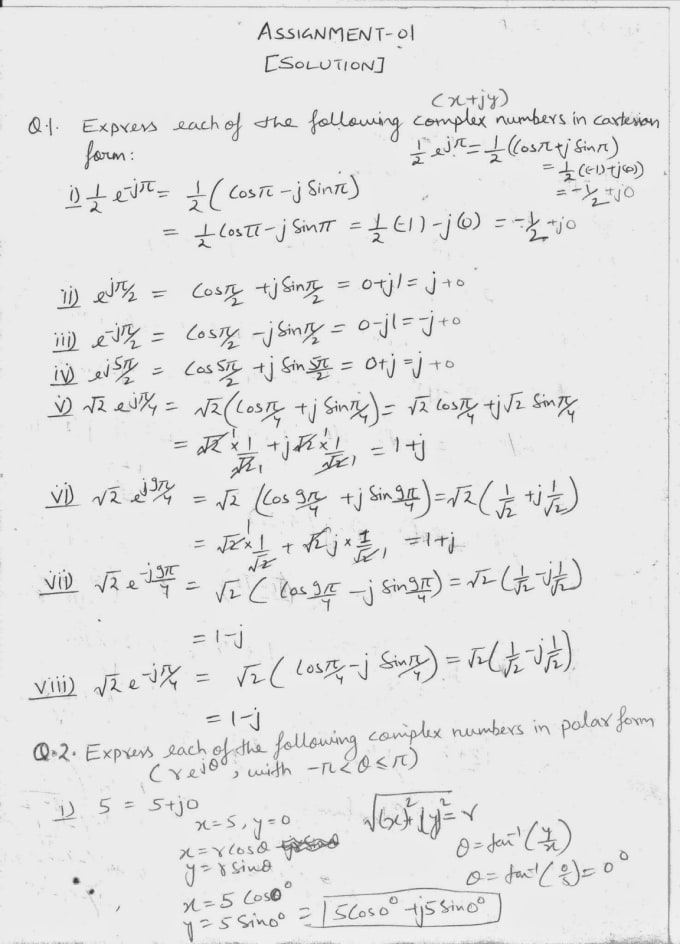 ASSIGNMENT-01
[SOLUTION]
(x+jy)
Q.1. Express each of the following complex numbers in cartesian
form:
1/2 e^jπ = 1/2 (Cosπ+j Sinπ)
= 1/2 (-1)+j(0))
= -1/2 +j0
i) 1/2 e^-jπ = 1/2 (Cosπ - j Sinπ)
= 1/2 Cosπ - j Sinπ = 1/2 (-1) - j(0) = -1/2 +j0
ii) e^jπ/2 = Cosπ/2 +j Sinπ/2 = 0+j1 = j+0
iii) e^-jπ/2 = Cosπ/2 - j Sinπ/2 = 0-j1 = -j+0
iv) e^j5π/2 = Cos5π/2 +j Sin5π/2 = 0+j = j+0
v) √2 e^jπ/4 = √2 (Cosπ/4 +j Sinπ/4) = √2 Cosπ/4 +j√2 Sinπ/4
= √2 × 1/√2 + j√2 × 1/√2 = 1+j
vi) √2 e^j9π/4 = √2 (Cos 9π/4 +j Sin 9π/4) = √2 (1/√2 + j 1/√2)
= √2 × 1/√2 + √2 j × 1/√2 = 1+j
vii) √2 e^-j9π/4 = √2 (Cos 9π/4 - j Sin 9π/4) = √2 (1/√2 - j 1/√2)
= 1-j
viii) √2 e^-jπ/4 = √2 (Cosπ/4 - j Sinπ/4) = √2 (1/√2 - j 1/√2)
= 1-j
Q.2. Express each of the following complex numbers in polar form
(re^jθ, with -π<θ≤π)
i) 5 = 5+j0
x=5, y=0
√(x)²+(y)² = r
x=rcosθ
θ=tan⁻¹(y/x)
y=rSinθ
θ=tan⁻¹(0/5)=0°
x=5 Cos0°
y=5 Sin0° = 5Cos0° +j5Sin0°